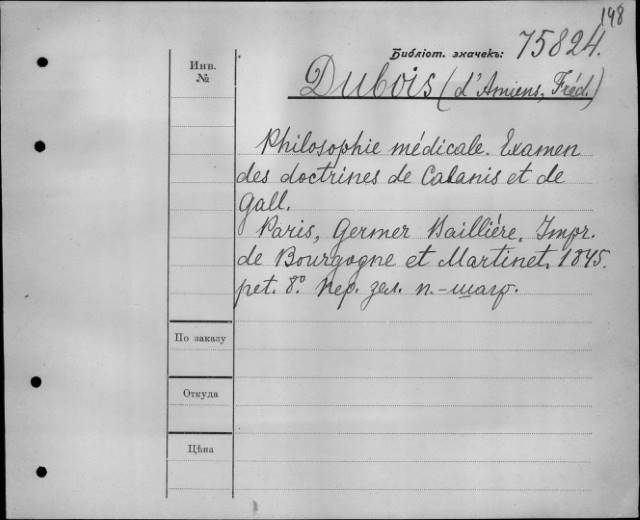 148
Библіот. значекъ: 75824.
Инв. №
Dubois (d'Amiens, Fréd.)
Philosophie médicale. Examen
des doctrines de Cabanis et de
Gall.
Paris, Germer Baillière. Impr.
de Bourgogne et Martinet. 1845.
pet. 8º. пер. зел. п.-шагр.
По заказу
Откуда
Цѣна